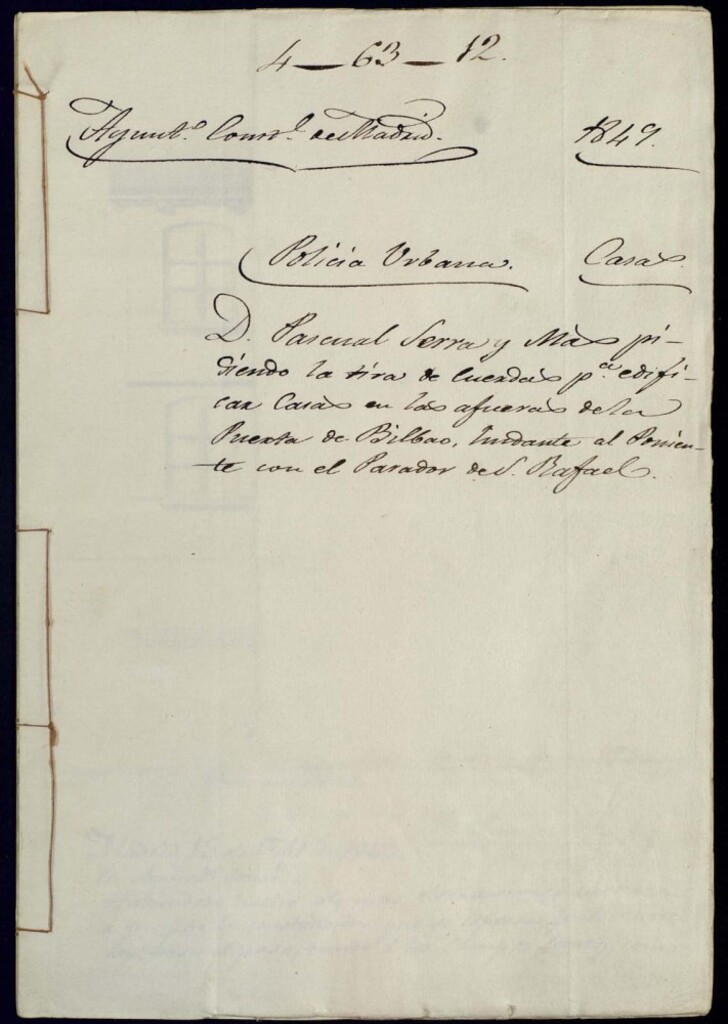 4 — 63 — 12.
Ayunt.º Const.l de Madrid. 1849.
Policia Urbana. Casas
D. Pascual Serra y Mas pi-
diendo la tira de cuerdas p.a edifi-
car Casas en las afueras de la
Puerta de Bilbao, lindante al Ponien-
te con el Parador de S. Rafael.